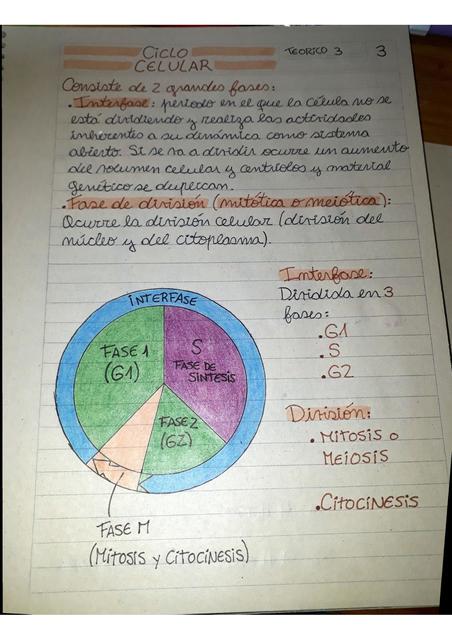 CICLO
CELULAR
TEORICO 3
3
Consiste de 2 grandes fases:
• Interfase: período en el que la célula no se
está dividiendo y realiza las actividades
inherentes a su dinámica como sistema
abierto. Si se va a dividir ocurre un aumento
del volumen celular y centríolos y material
genético se duplican.
• Fase de división (mitótica o meiótica):
Ocurre la división celular (división del
núcleo y del citoplasma).
Interfase:
Dividida en 3
fases:
• G1
• S
• G2
División:
• MITOSIS O
MEIOSIS
• CITOCINESIS
INTERFASE
FASE 1
(G1)
S
FASE DE
SINTESIS
FASE 2
(G2)
FASE M
(MITOSIS Y CITOCINESIS)